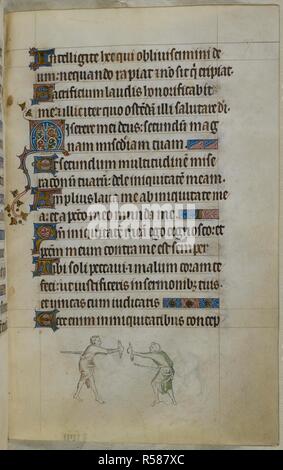 Intelligite hec qui obliviscimini de
um: nequando rapiat 7 nō sit q̄ eripiat.
Sacrificium laudis honorificabit
me: 7 illic iter quo ostēdā illi salutare dī
Miserere mei deus: secundum mag
nam misēdiam tuam.
Et secundum multitudinem mise
rationū tuarū: dele iniquitatē meam.
Amplius lava me ab iniquitate me
a: et a pctō meo munda me.
Qm̄ iniquitatē meā ego cognosco: et
pctm̄ meum contra me est semper
Tibi soli peccavi: 7 malum coram te
feci: ut iustificeris in sermonibȝ tuis
et vincas cum iudicaris
Ecce enim in iniquitatibus concep
alamy
Image ID: R587XC
www.alamy.com